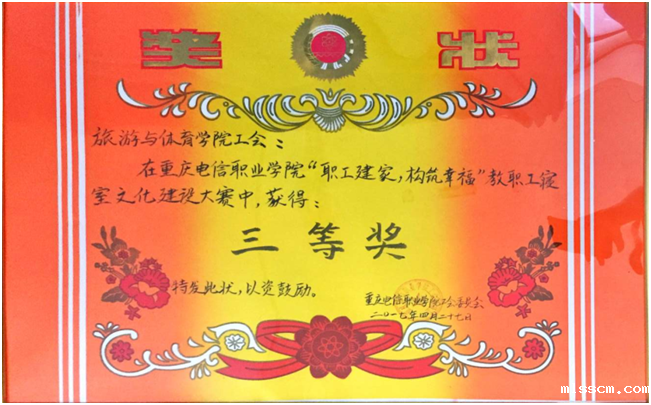 奖 状
旅游与体育学院工会：
在重庆电信职业学院“职工建家，构筑幸福”教职工寝
室文化建设大赛中，获得：
三等奖
特发此状，以资鼓励。
重庆电信职业学院工会委员会
二〇一七年四月二十七日
misscm.com